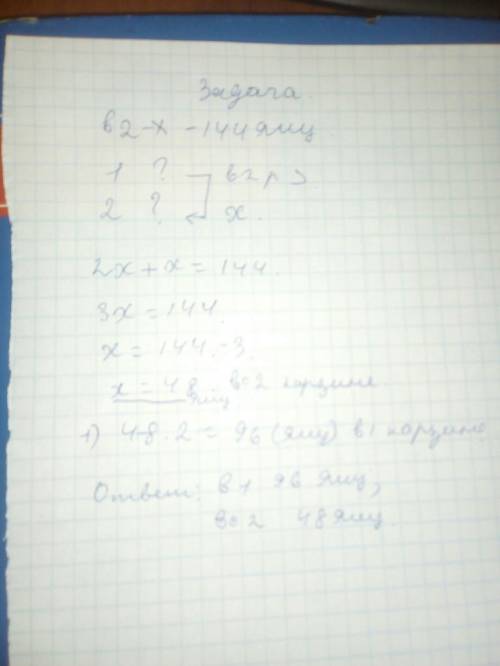 Задача.
в 2-х - 144 яиц
1 ? в 2 р >
2 ? x.
2x + x = 144.
3x = 144.
x = 144 : 3
x = 48 яиц во 2 корзине.
1) 48 · 2 = 96 (яиц) в 1 корзине
Ответ: в 1 96 яиц,
во 2 48 яиц.